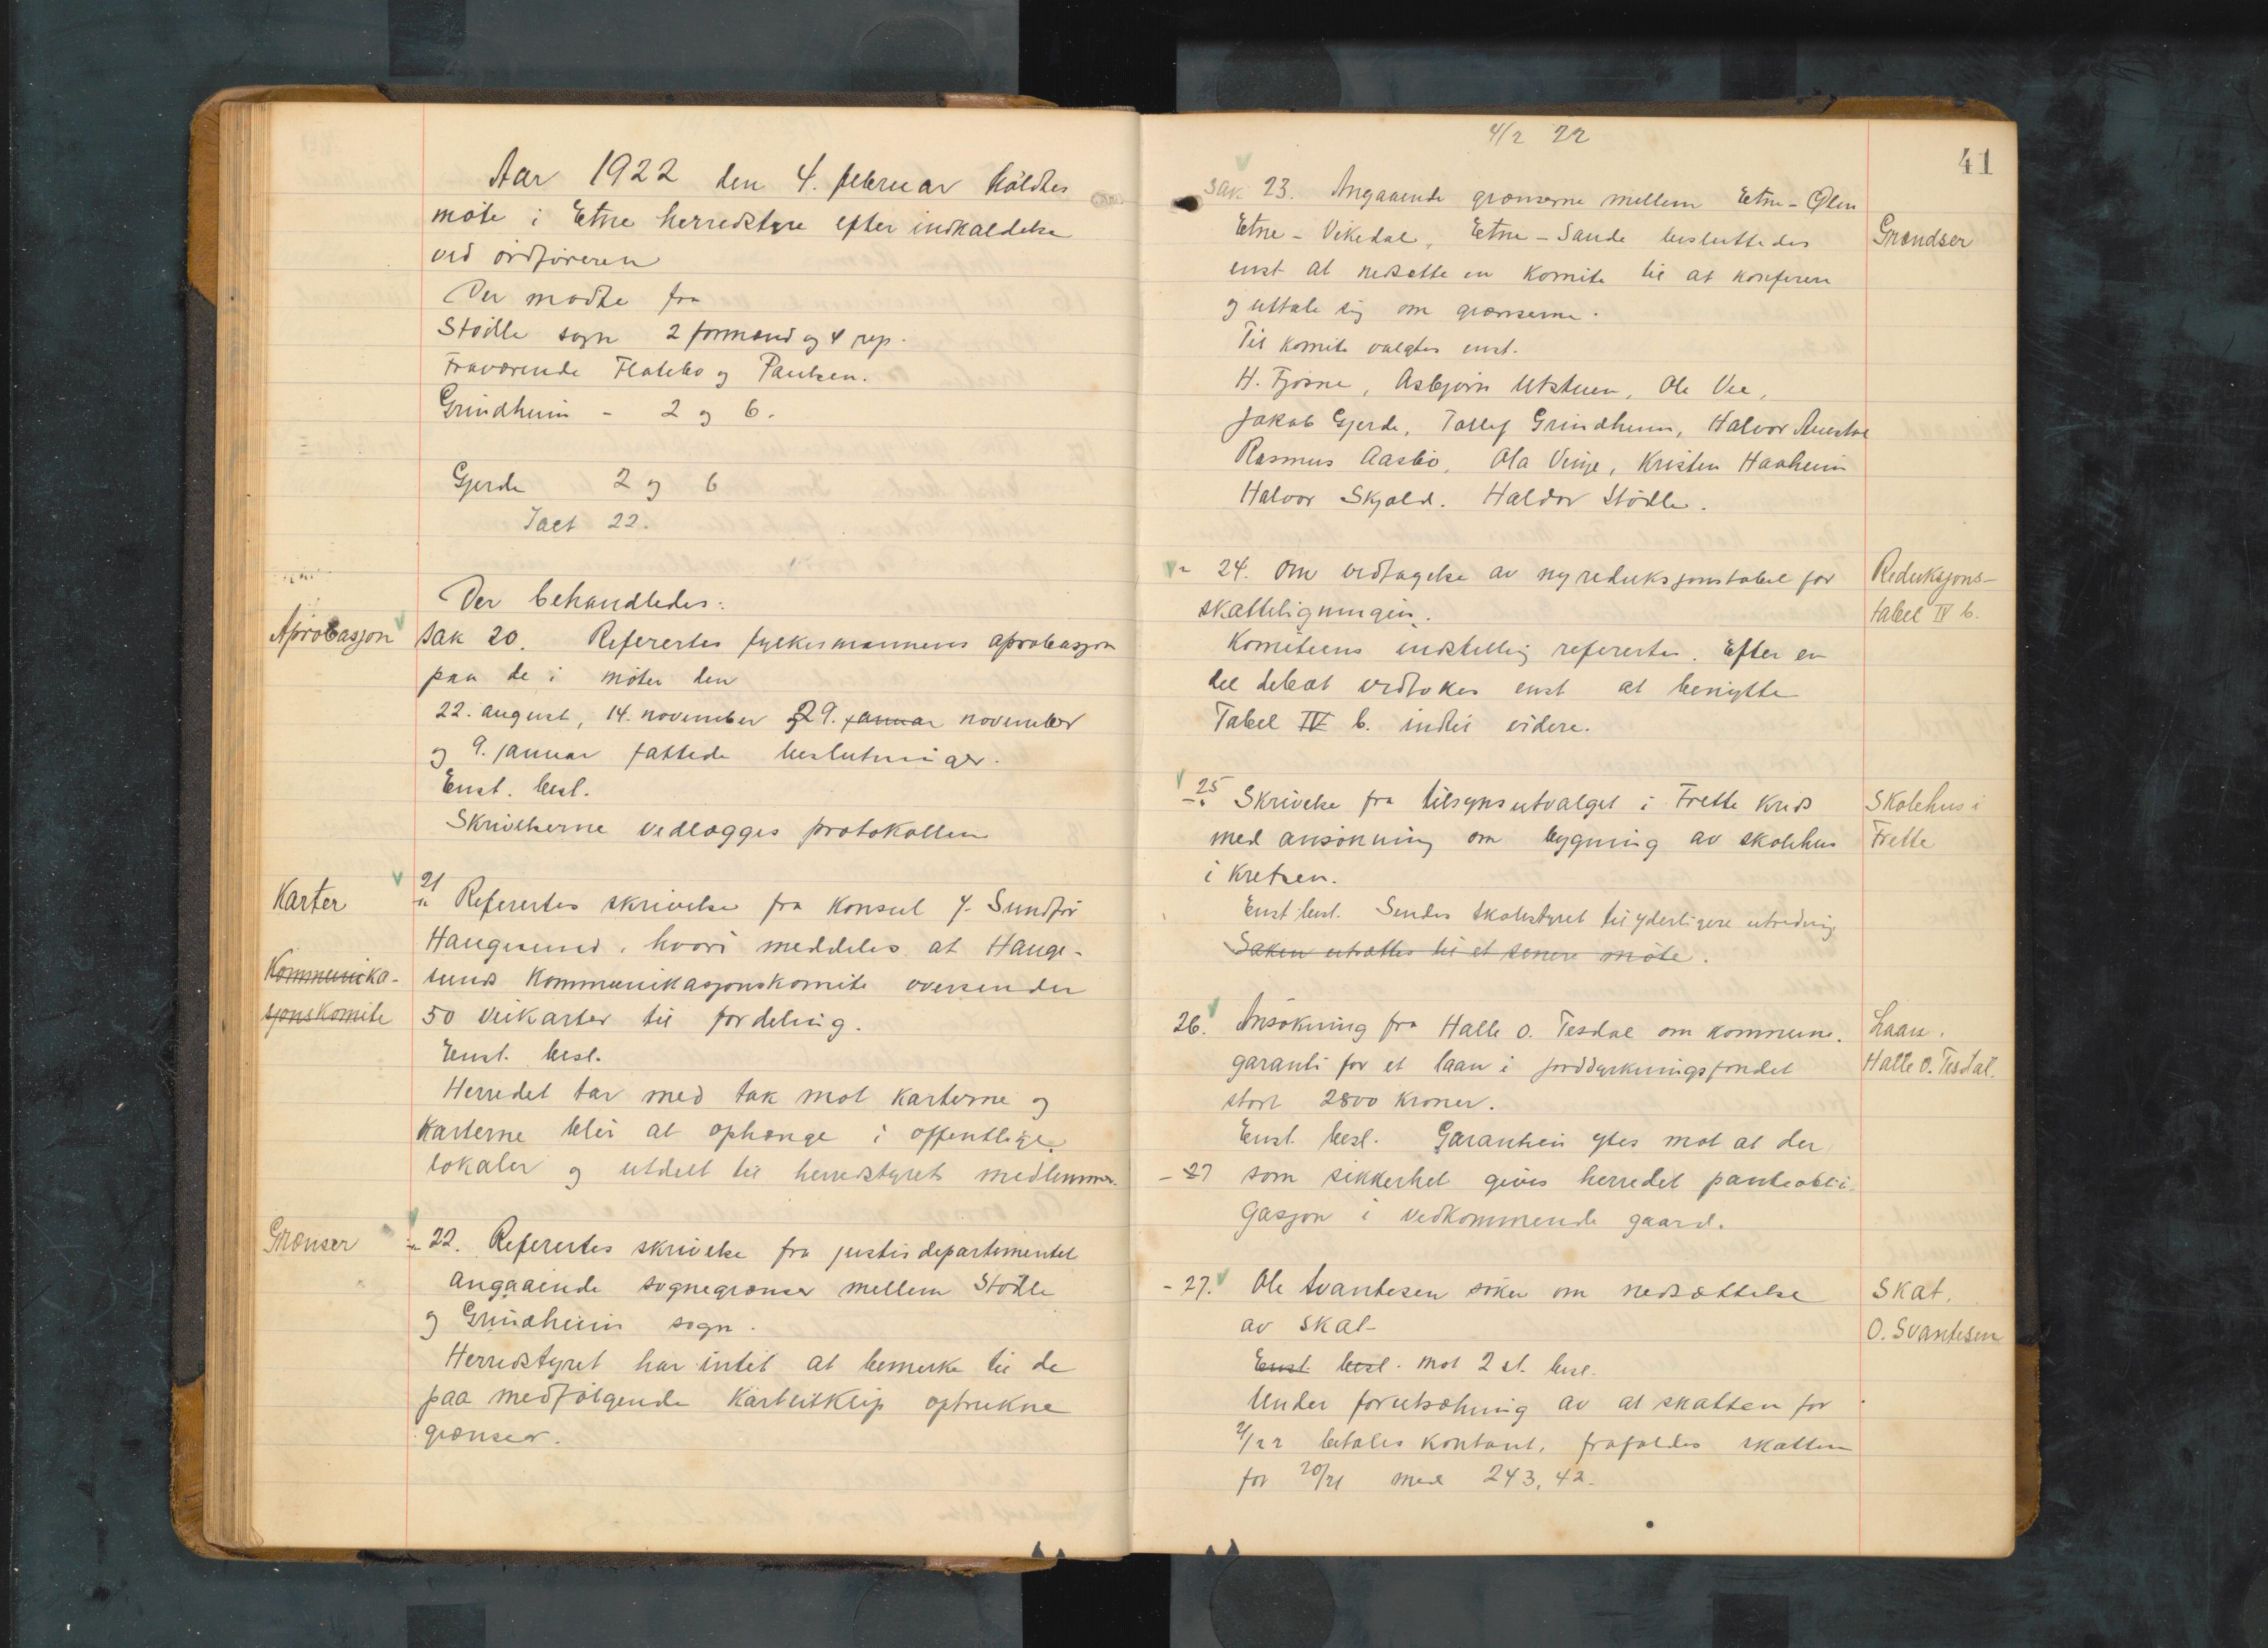 Aar 1922 den 4. februar holdtes
møte i Etne herredstyre efter indkaldelse
ved ordføreren
Der mødte fra
Stødle sogn 2 formænd og 4 rep.
Fraværende Flatebø og Paulsen.
Grindheim - 2 og 6.
Gjerde 2 og 6
Ialt 22.
Der behandledes:
Aprobasjon
sak 20. Referertes fylkesmannens aprobasjon
paa de i møter den
22. august, 14. november og 29. januar november
og 9. januar fattede beslutninger.
Enst. besl.
Skrivelserne vedlægges protokollen
Karter
" 21 Referertes skrivelse fra konsul J. Sundfør
Haugesund, hvori meddeles at Hauge-
Kommunika-
sunds kommunikasjonskomite oversender
sjonskomite
50 veikarter til fordeling.
Enst. besl.
Herredet tar med tak mot karterne og
karterne blir at ophænge i offentlige
lokaler og utdelt til herredstyrets medlemmer.
Grænser
" 22. Referertes skrivelse fra justisdepartementet
angaaende sognegrænser mellem Stødle
og Grindheim sogn.
Herredstyret har intet at bemerke til de
paa medfølgende kartutklip optrukne
grænser.
4/2 22
41
Sak 23. Angaaende grænserne mellem Etne - Ølen
Etne - Vikedal, Etne - Sande besluttedes
Grændser
enst at nedsætte en komite til at konferere
og uttale sig om grænserne.
Til komite valgtes enst.
H. Fjøsne, Asbjørn Utstuen, Ole Vee,
Jakob Gjerde, Tollef Grindheim, Halvor
Rasmus Aasbø, Ola Vinje, Kristen Haaheim
Halvor Skjold. Haldor Stødle.
" 24. Om vedtagelse av ny reduksjonstabel for
Reduksjons-
skatteligningen.
tabel IV b.
Komiteens indstilling refertes. Efter en
del debat vedtokes enst at benytte
Tabel IV b. indtil videre.
- 25. Skrivelse fra tilsynsutvalget i Frette kreds
Skolehus i
med ansøkning om bygning av skolehus
Frette
i kretsen.
Enst. besl. Sendes skolestyret til yderligere utredning
Saken utsættes til et senere møte.
26. Ansøkning fra Halle O. Tesdal om kommune.
Laan.
garanti for et laan i jorddyrkningsfondet
Halle O. Tesdal.
stort 2800 kroner.
Enst. besl. Garantien ytes mot at der
- 27 som sikkerhet gives herredet panteobli-
gasjon i vedkommende gaard.
- 27. Ole Svantesen søker om nedsættelse
Skat.
av skat-
O. Svantesen
Enst besl. mot 2 st. besl.
Under forutsætning av at skatten for
21/22 betales kontant, frafaldes skatten
for 20/21 med 243,42.